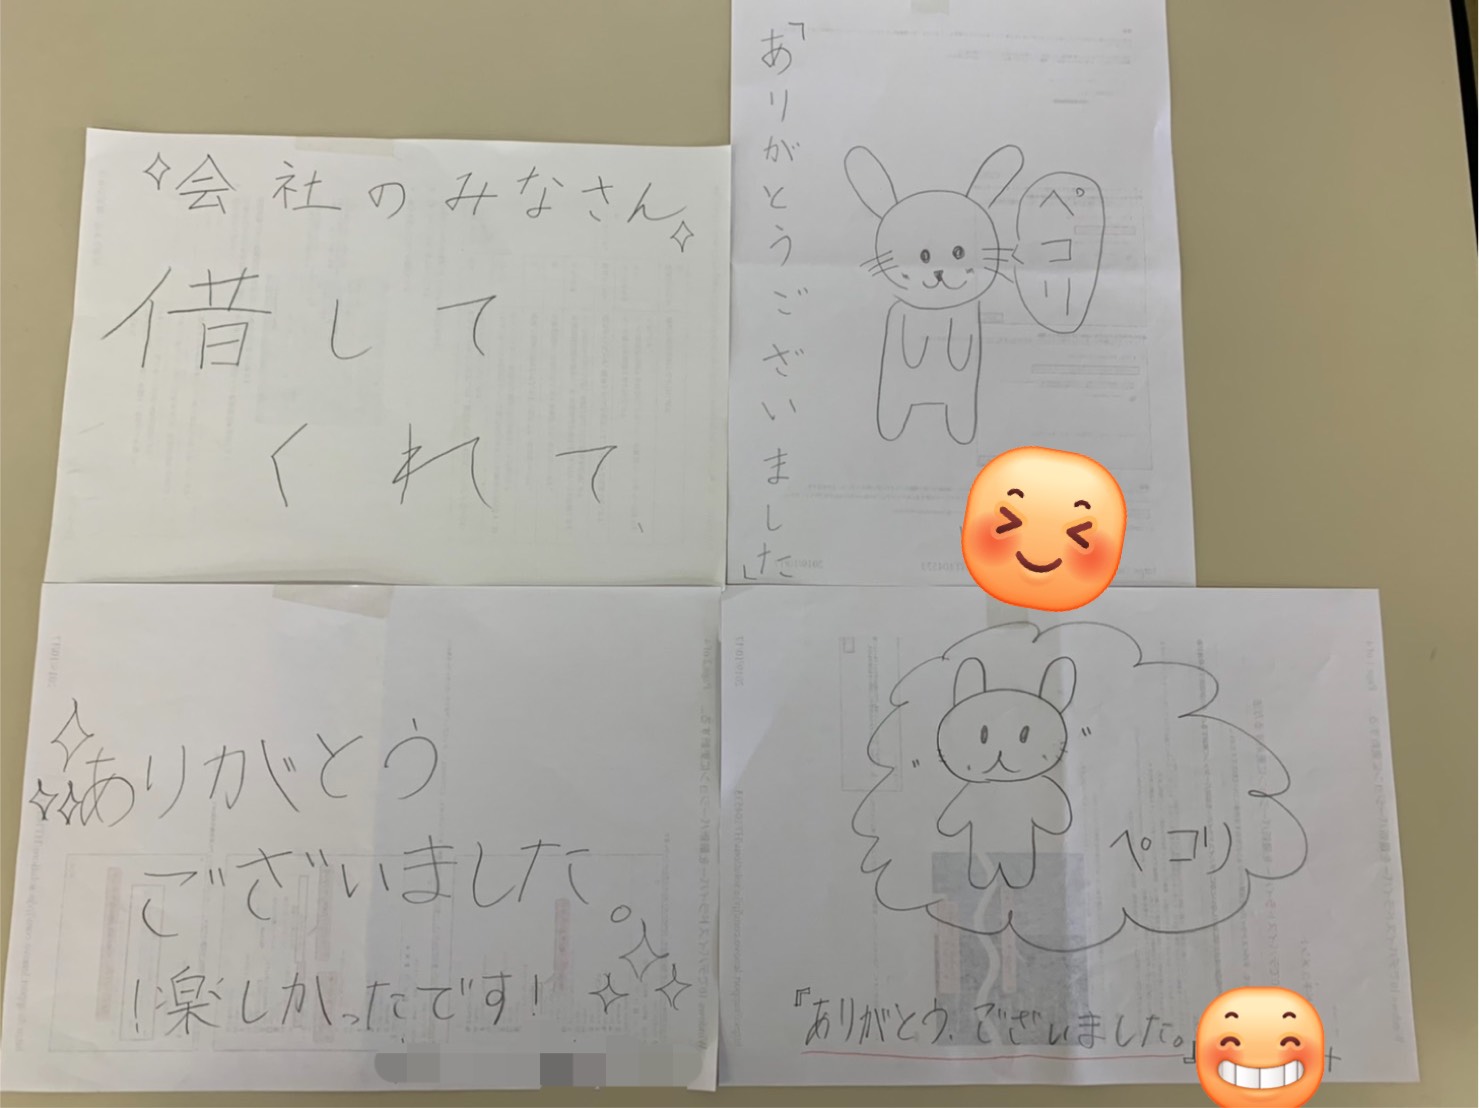 会社のみなさん
借して
くれて、
「ありがとうございました」
ペコリ
ありがとう
ございました。
!楽しかったです!
ペコリ
『ありがとう、ございました。』